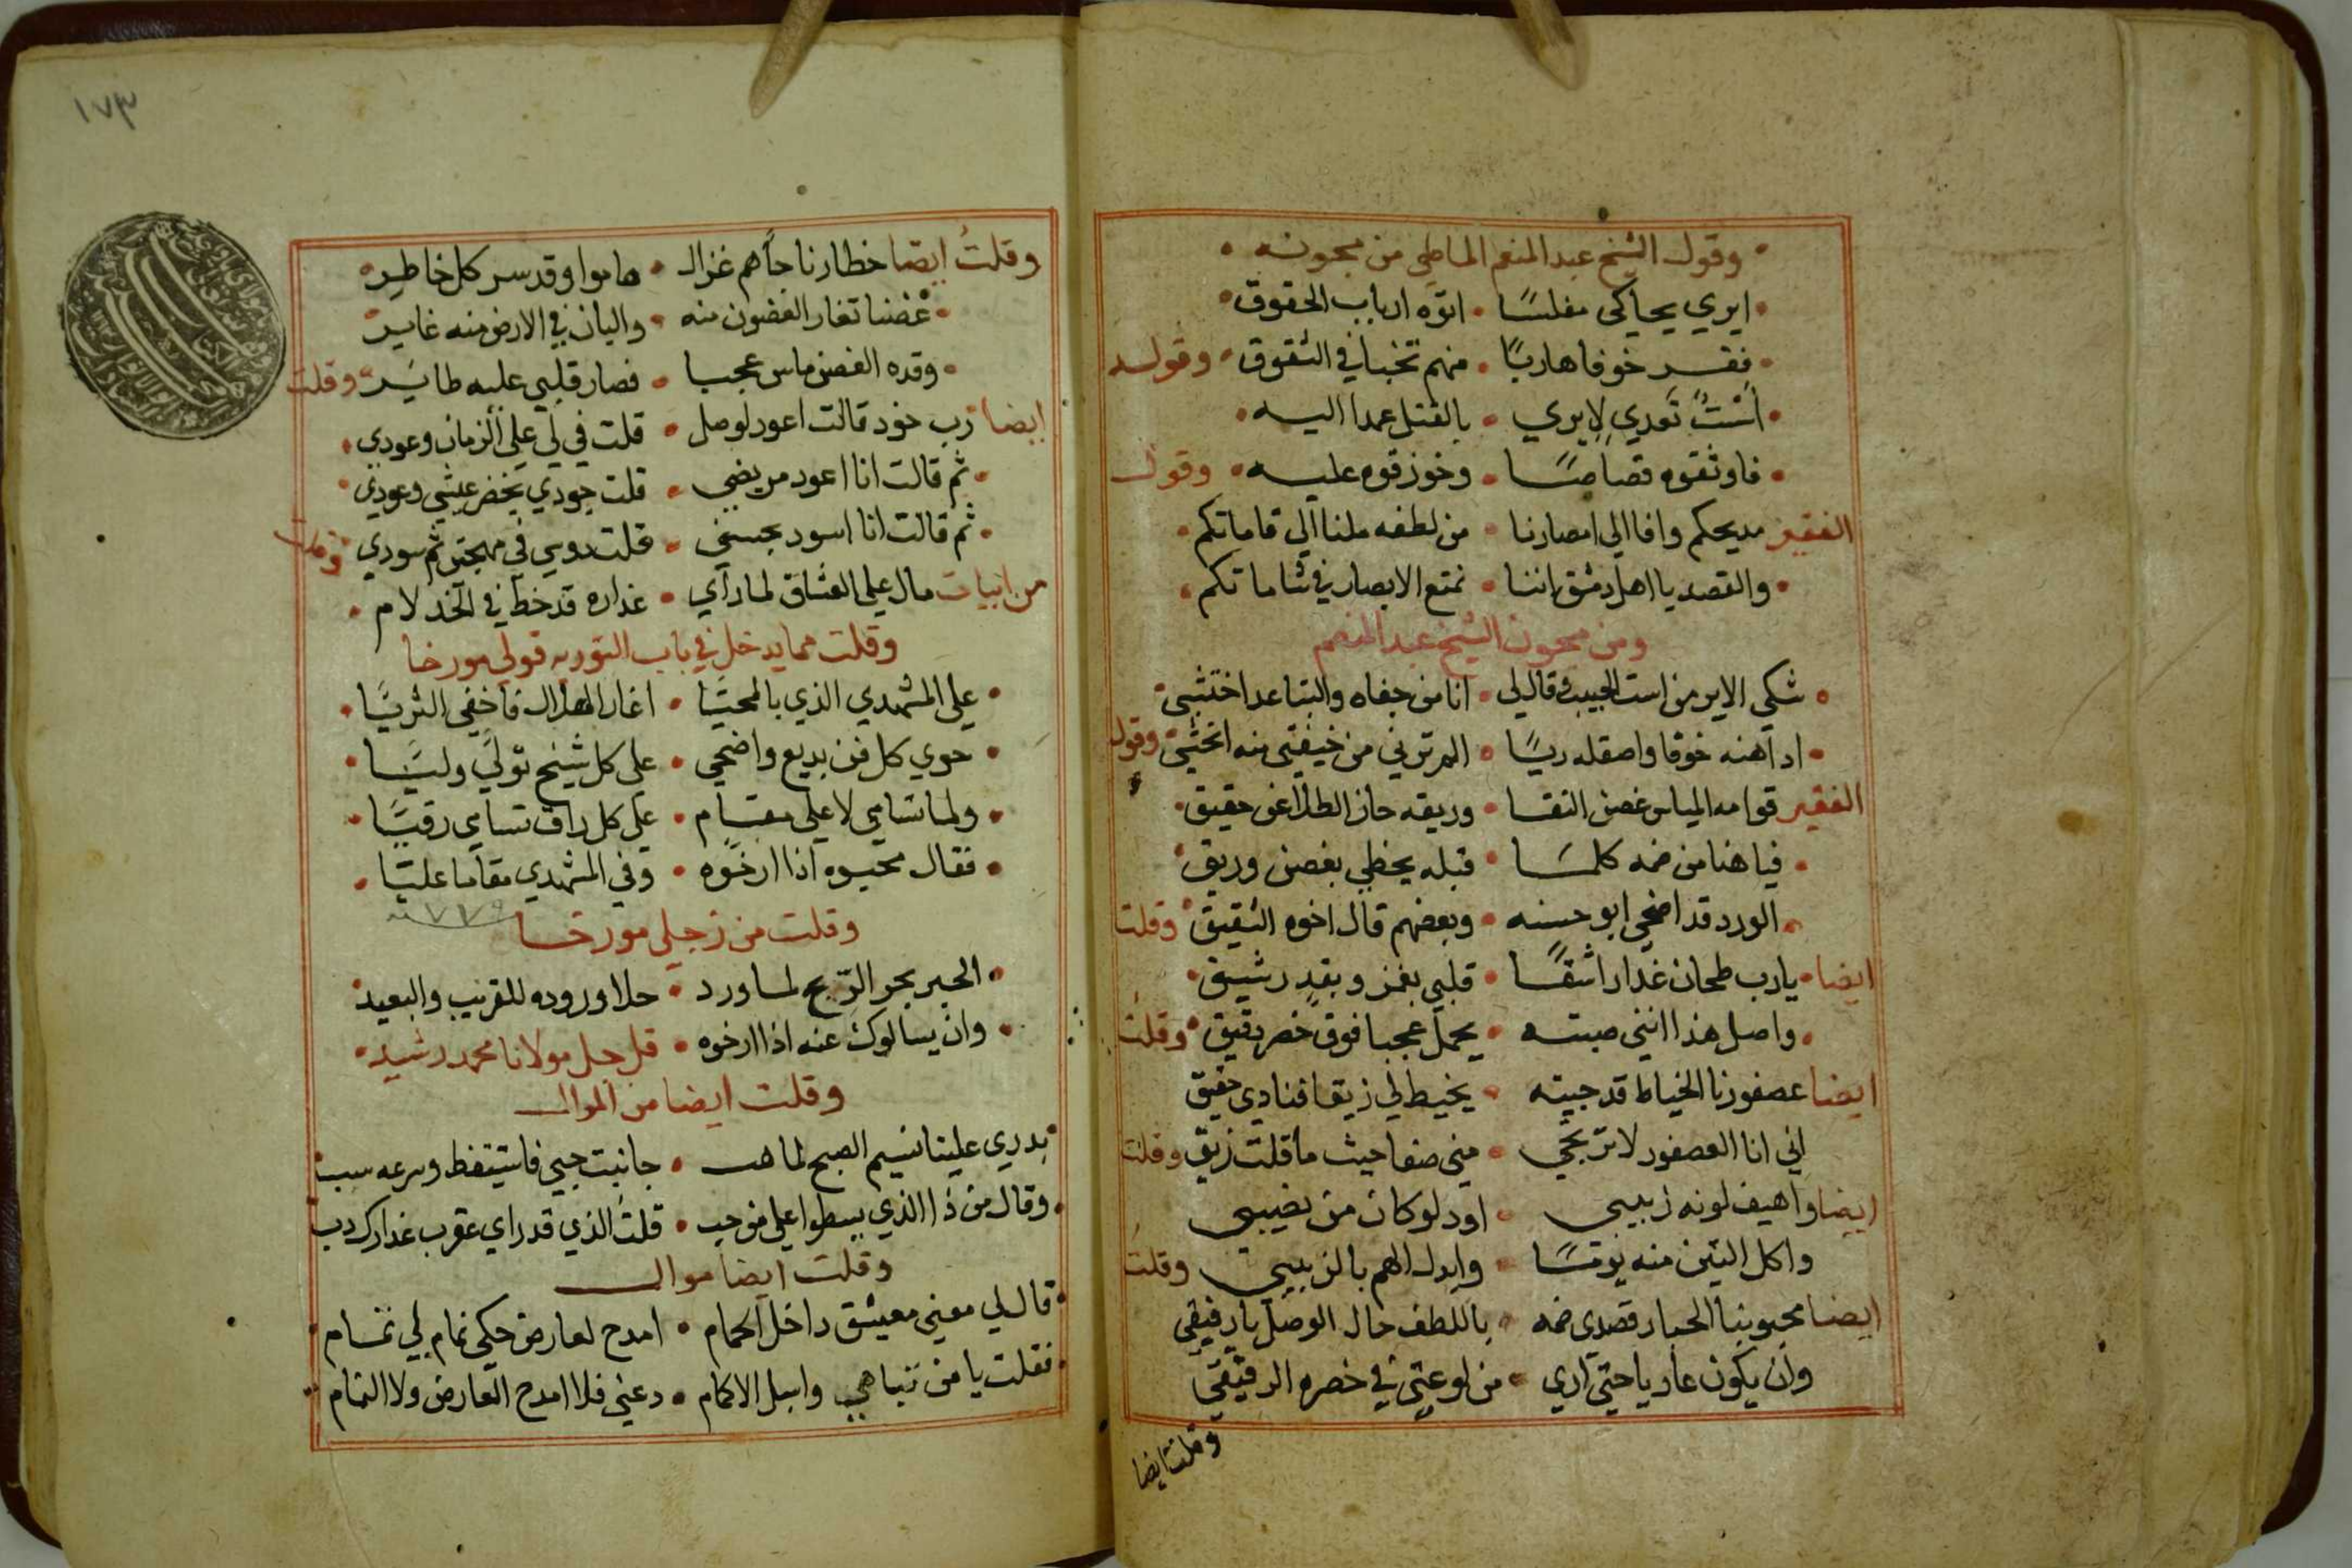 وقول الشيخ عبد المنعم الماطي من مجونه
ايري يحاكي مفلسًا • اتوه ارباب الحقوق
ففر خوفا هاربًا • منهم تخبا في الشقوق • وقوله
است تعدي لايري • بالقتل عمدا اليه
فاوثقوه قصاصًا • وخوزقوه عليه • وقول
الفقير مديحكم وافا الي امصارنا • من لطفه ملنا الي قاماتكم
والقصد يا اهل دمشق اننا • نمتع الابصار في شاماتكم
ومن مجون الشيخ عبد المنعم
شكي الاير من است الحبيب وقال لي • انا من جفاه والتباعد اختشي
اداهنه خوفا واصقله ريسًا • الم ترني من خيفتي منه انحشي وقول
الفقير قوامه المياس غصن النقا • وريقه حاز الطلا عن حقيق
فيا هنا من ضمه كلما • قبله يحظي بغصن وريق
الورد قد اضحي ابو حسنه • وبعضهم قال اخوه الشقيق وقلت
ايضا • يا رب طحان غدا راشقًا • قلبي بغمز وبقد رشيق
واصل هذا انني صبته • يحمل عجبا فوق خصر دقيق وقلت
ايضا عصفورنا الخياط قد جيته • يخيط لي زيقا فنادي حقيق
اني انا العصفور لا ترتجي • مني صفا حيث ما قلت زيق وقلت
ايضا واهيف لونه زبيبي • اود لو كان من نصيبي
واكل التين منه يومًا • وابدل الهم بالزبيبي وقلت
ايضا محبوبنا الحمار قصدي ضمه • باللطف حال الوصل يا رفيقي
وان يكون عاريا حتي اري • من لوعتي في خصره الرقيقي
وقلت ايضا
١٧٣
وقلت ايضا خطارنا جاهم غزال • هاموا وقد سر كل خاطر
غصنا تغار الغصون منه • والبان في الارض منه غاير
وقده الغصن ماس عجبا • فصار قلبي عليه طاير • وقلت
ايضا رب خود قالت اعود لوصل • قلت في لي علي الزمان وعودي
ثم قالت انا اعود مريضي • قلت جودي يخضر عيشي وعودي
ثم قالت انا اسود بحسني • قلت دوسي في مهجتي ثم سودي وقلت
من ابيات مال علي العشاق لما راي • عذاره قد خط في الخد لام
وقلت مما يدخل في باب التوريه قولي مورخا
علي المشهدي الذي بالمحيا • اغار الهلال فاخفي الثريا
حوي كل فن بديع واضحي • علي كل شيخ تولي وليا
ولما تسامي لاعلي مقام • علي كل راق تسامي رقيا
فقال محبوه اذا ارخوه • وفي المشهدي مقاما عليا
وقلت من زجلي مورخا
الحبر بحر الربح لما ورد • حلا وروده للقريب والبعيد
وان يسالوك عنه اذا ارخوه • قل جل مولانا محمد رشيد
وقلت ايضا من الموال
بدري علينا نسيم الصبح لما هب • جانبت جبي فاستيقظ وسرعه سب
وقال من ذا الذي يسطوا علي من حب • قلت الذي قد راي عقرب عذارك دب
وقلت ايضا موال
قال لي معيني معيشق داخل الحمام • امدح لعارض حكي نمام لي نمام
فقلت يا من تباهي واسبل الاكمام • دعني فلا امدح العارض ولا النمام